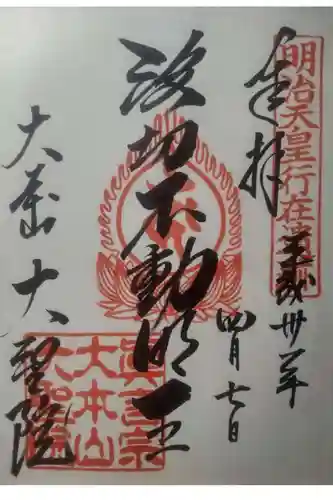 奉拝
明治天皇行在
平成卅年
四月七日
波切不動明王
大本山 大聖院
真言宗
大本山
大聖院